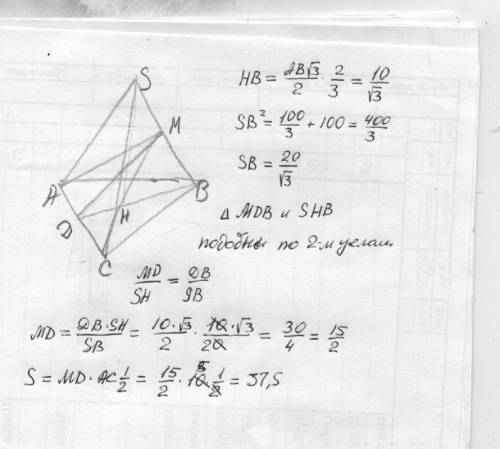 S
M
A
B
D
H
C
HB = AB√3/2 · 2/3 = 10/√3
SB² = 100/3 + 100 = 400/3
SB = 20/√3
Δ MDB и SHB
подобны по 2-м углам
MD/SH = DB/SB
MD = DB·SH/SB = 10·√3/2 · 10·√3/20 = 30/4 = 15/2
S = MD · AC 1/2 = 15/2 · 10 5 · 1/2 = 37,5